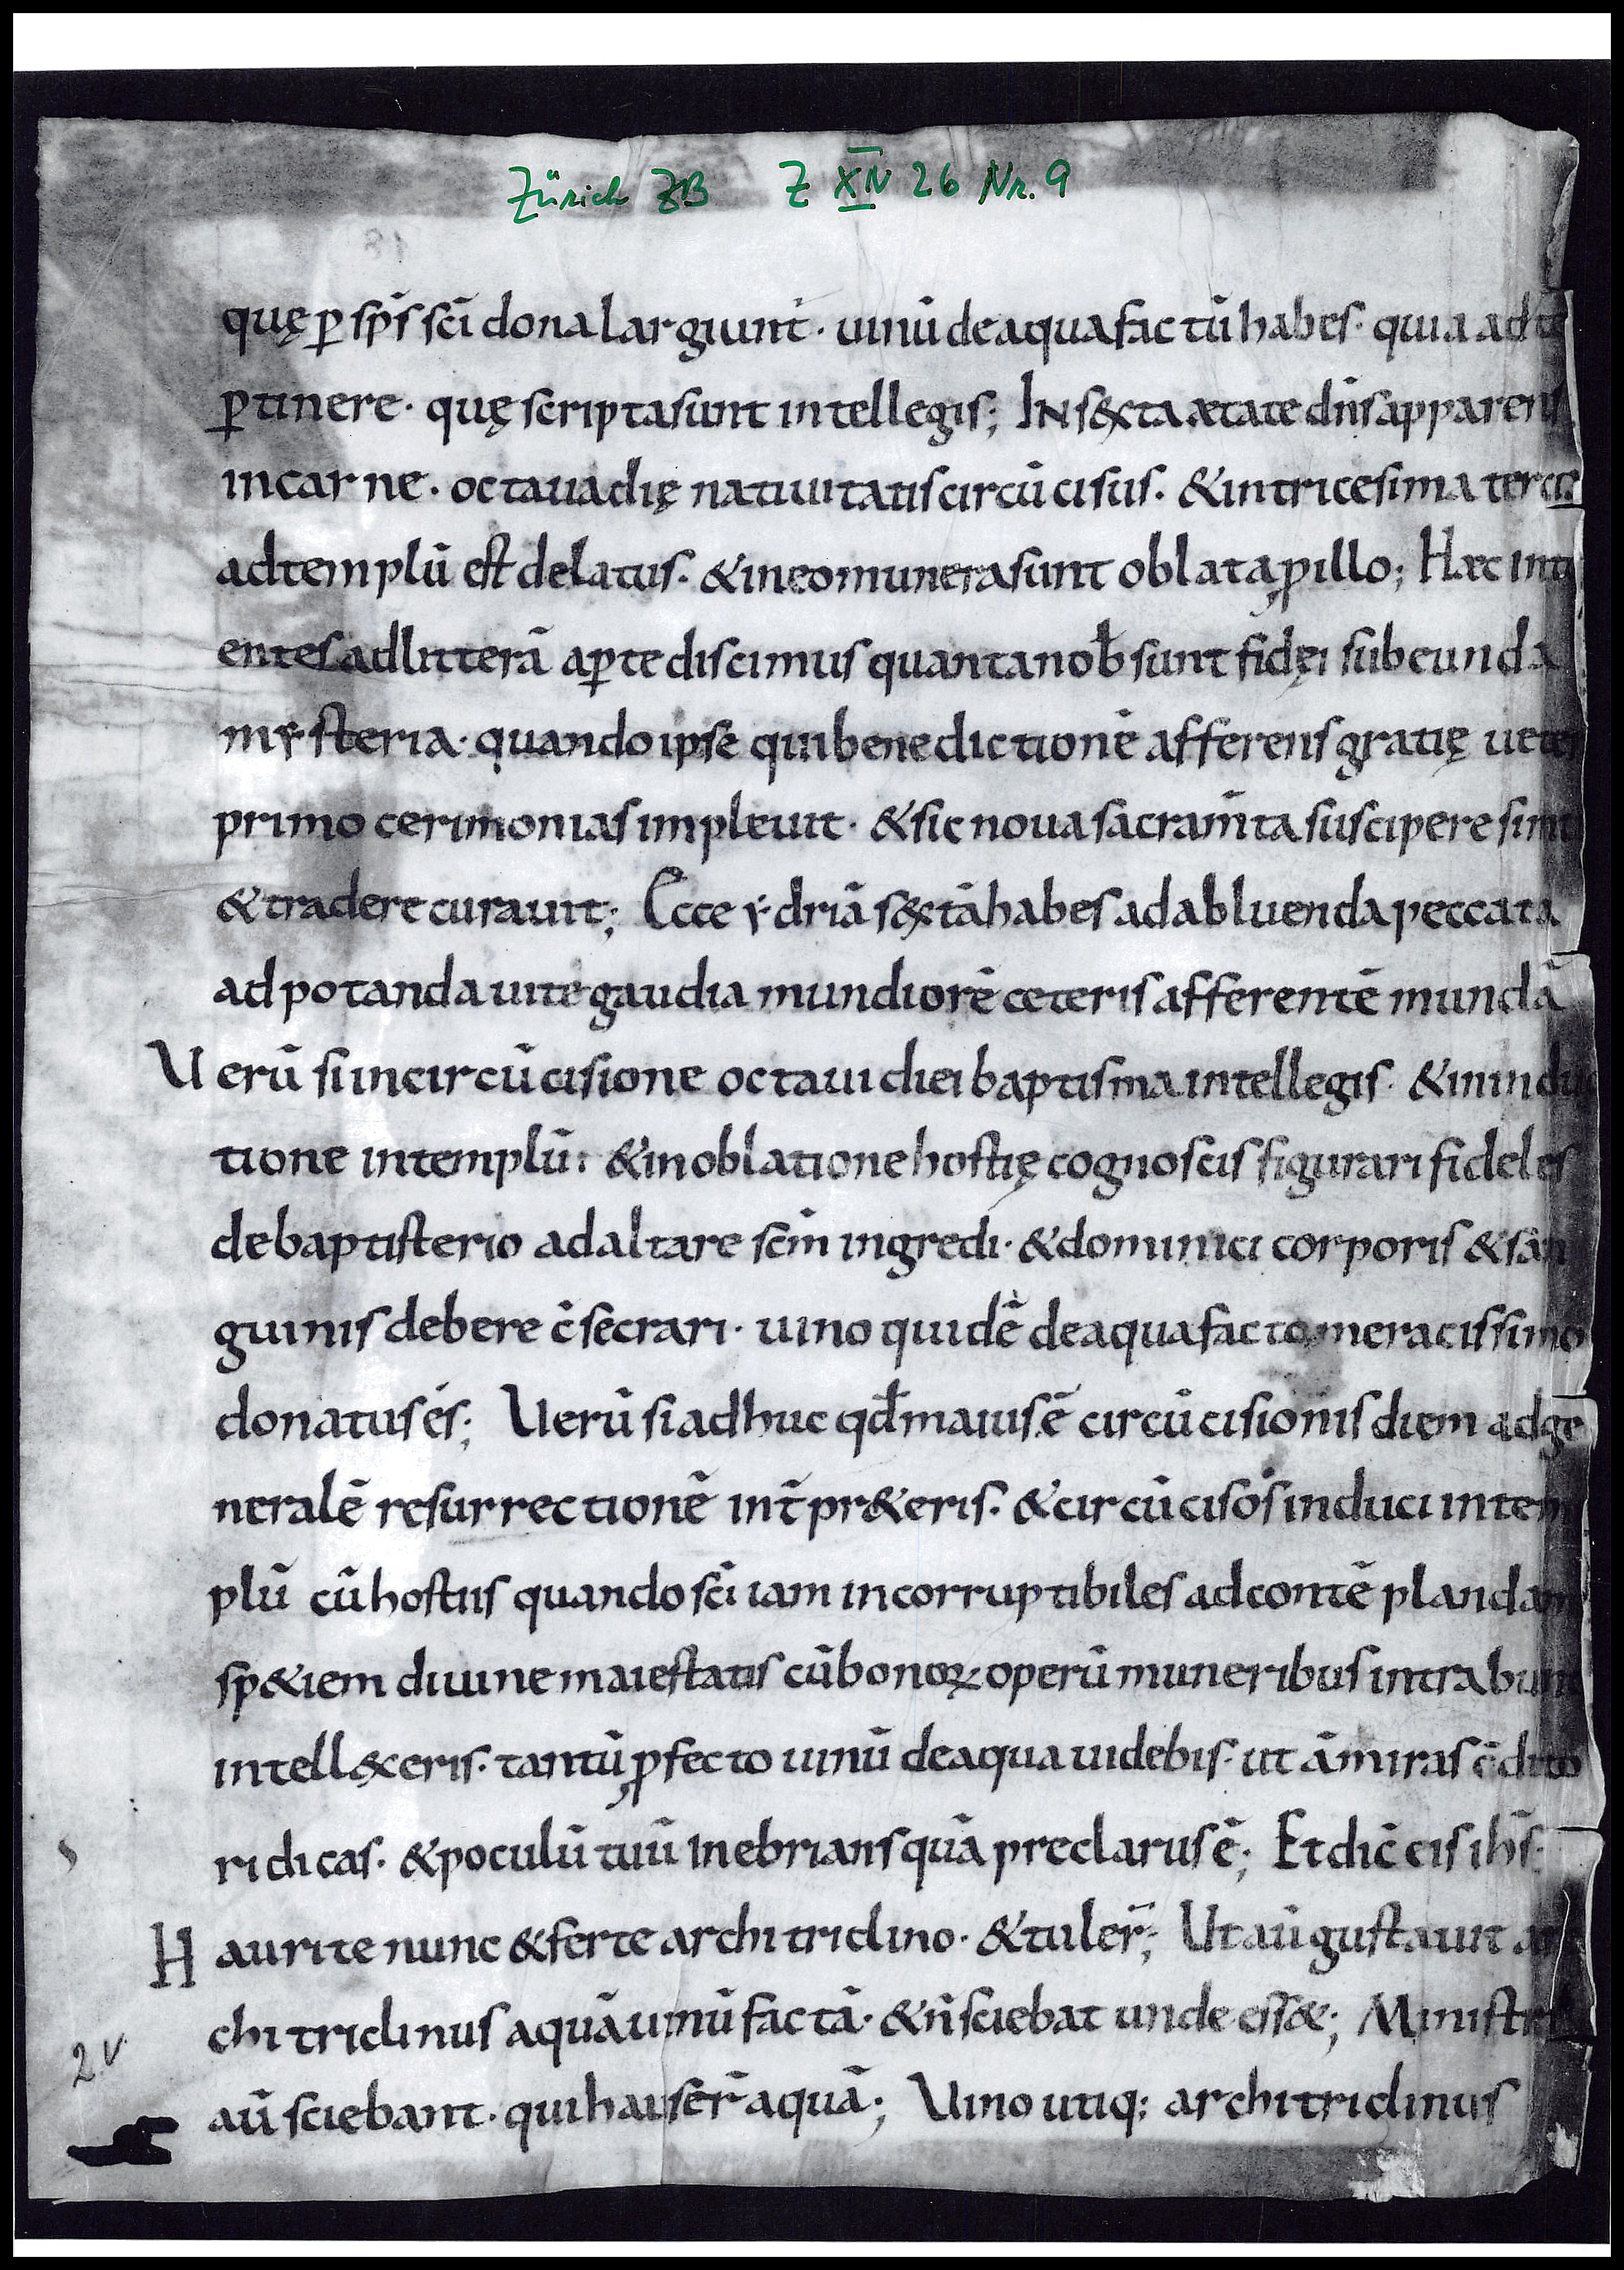 Zürich ZB Z XIV 26 Nr. 9
quę ꝑ sp̄s sc̄i dona largiunt · uinū de aqua factū habes · quia ad te
ꝑtinere · quę scripta sunt intellegis; IN sexta ætate dn̄s apparens
in carne · octaua dię natiuitatis circūcisus · & in tricesima tercia
ad templū est delatus · & in eo munera sunt oblata ꝓ illo; Hæc intu
entes ad litterā aꝑte discimus quanta nob̄ sunt fidęi subeunda
mẏsteria · quando ipse qui benedictionē afferens gratię ueter
primo cerimonias impleuit · & sic noua sacram̄ta suscipere simul
& tradere curauit; Ecce ẏdriā sextā habes ad abluenda peccata
ad potanda uite gaudia mundiorē ceteris afferentē mundā
Uerū si in circūcisione octaui diei baptisma intellegis · & in induc
tione in templū: & in oblatione hostię cognoscis figurari fideles
de baptisterio ad altare sc̄m ingredi · & dominici corporis & san
guinis debere c̄secrari · uino quidē de aqua facto meracissimo
donatus és; Uerū si adhuc qđ maius ē circūcisionis diem ad ge
neralē resurrectionē int̄pr&eris · & circūcisos induci in tem
plū cū hostiis quando sc̄i iam incorruptibiles ad contēplandam
sp&iem diuine maiestatis cū bonoꝝ operū muneribus intrabunt
intellexeris · tantū ꝓfecto uinū de aqua uidebis · ut āmiras c̄dito
ri dicas · & poculū tuū inebrians quā preclarus ē; Et dic̄ eis ih̄s;
Haurite nunc & ferte architriclino · & tuler̄; Ut aū gustauit ar
chitriclinus aquā uinū factā · & n̄ sciebat unde ess&; Ministri
aū sciebant · qui hauser̄ aquā; Uino utiq; architriclinus
2v